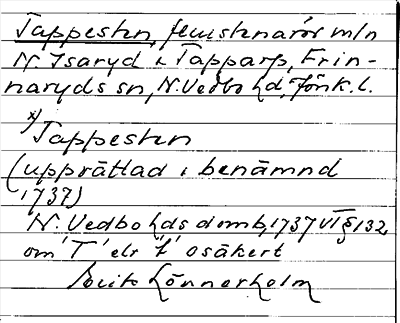 Tappesten, femstenarör mln
N. Isaryd i Tapparp, Frin-
naryds sn, N. Vedbo hd, Jönk. l.
x) Tappesten
(upprättad i benämnd
1737)
N. Vedbo hds domb, 1737 VI § 132
om 'T' elr 't' osäkert
Lönnerholm